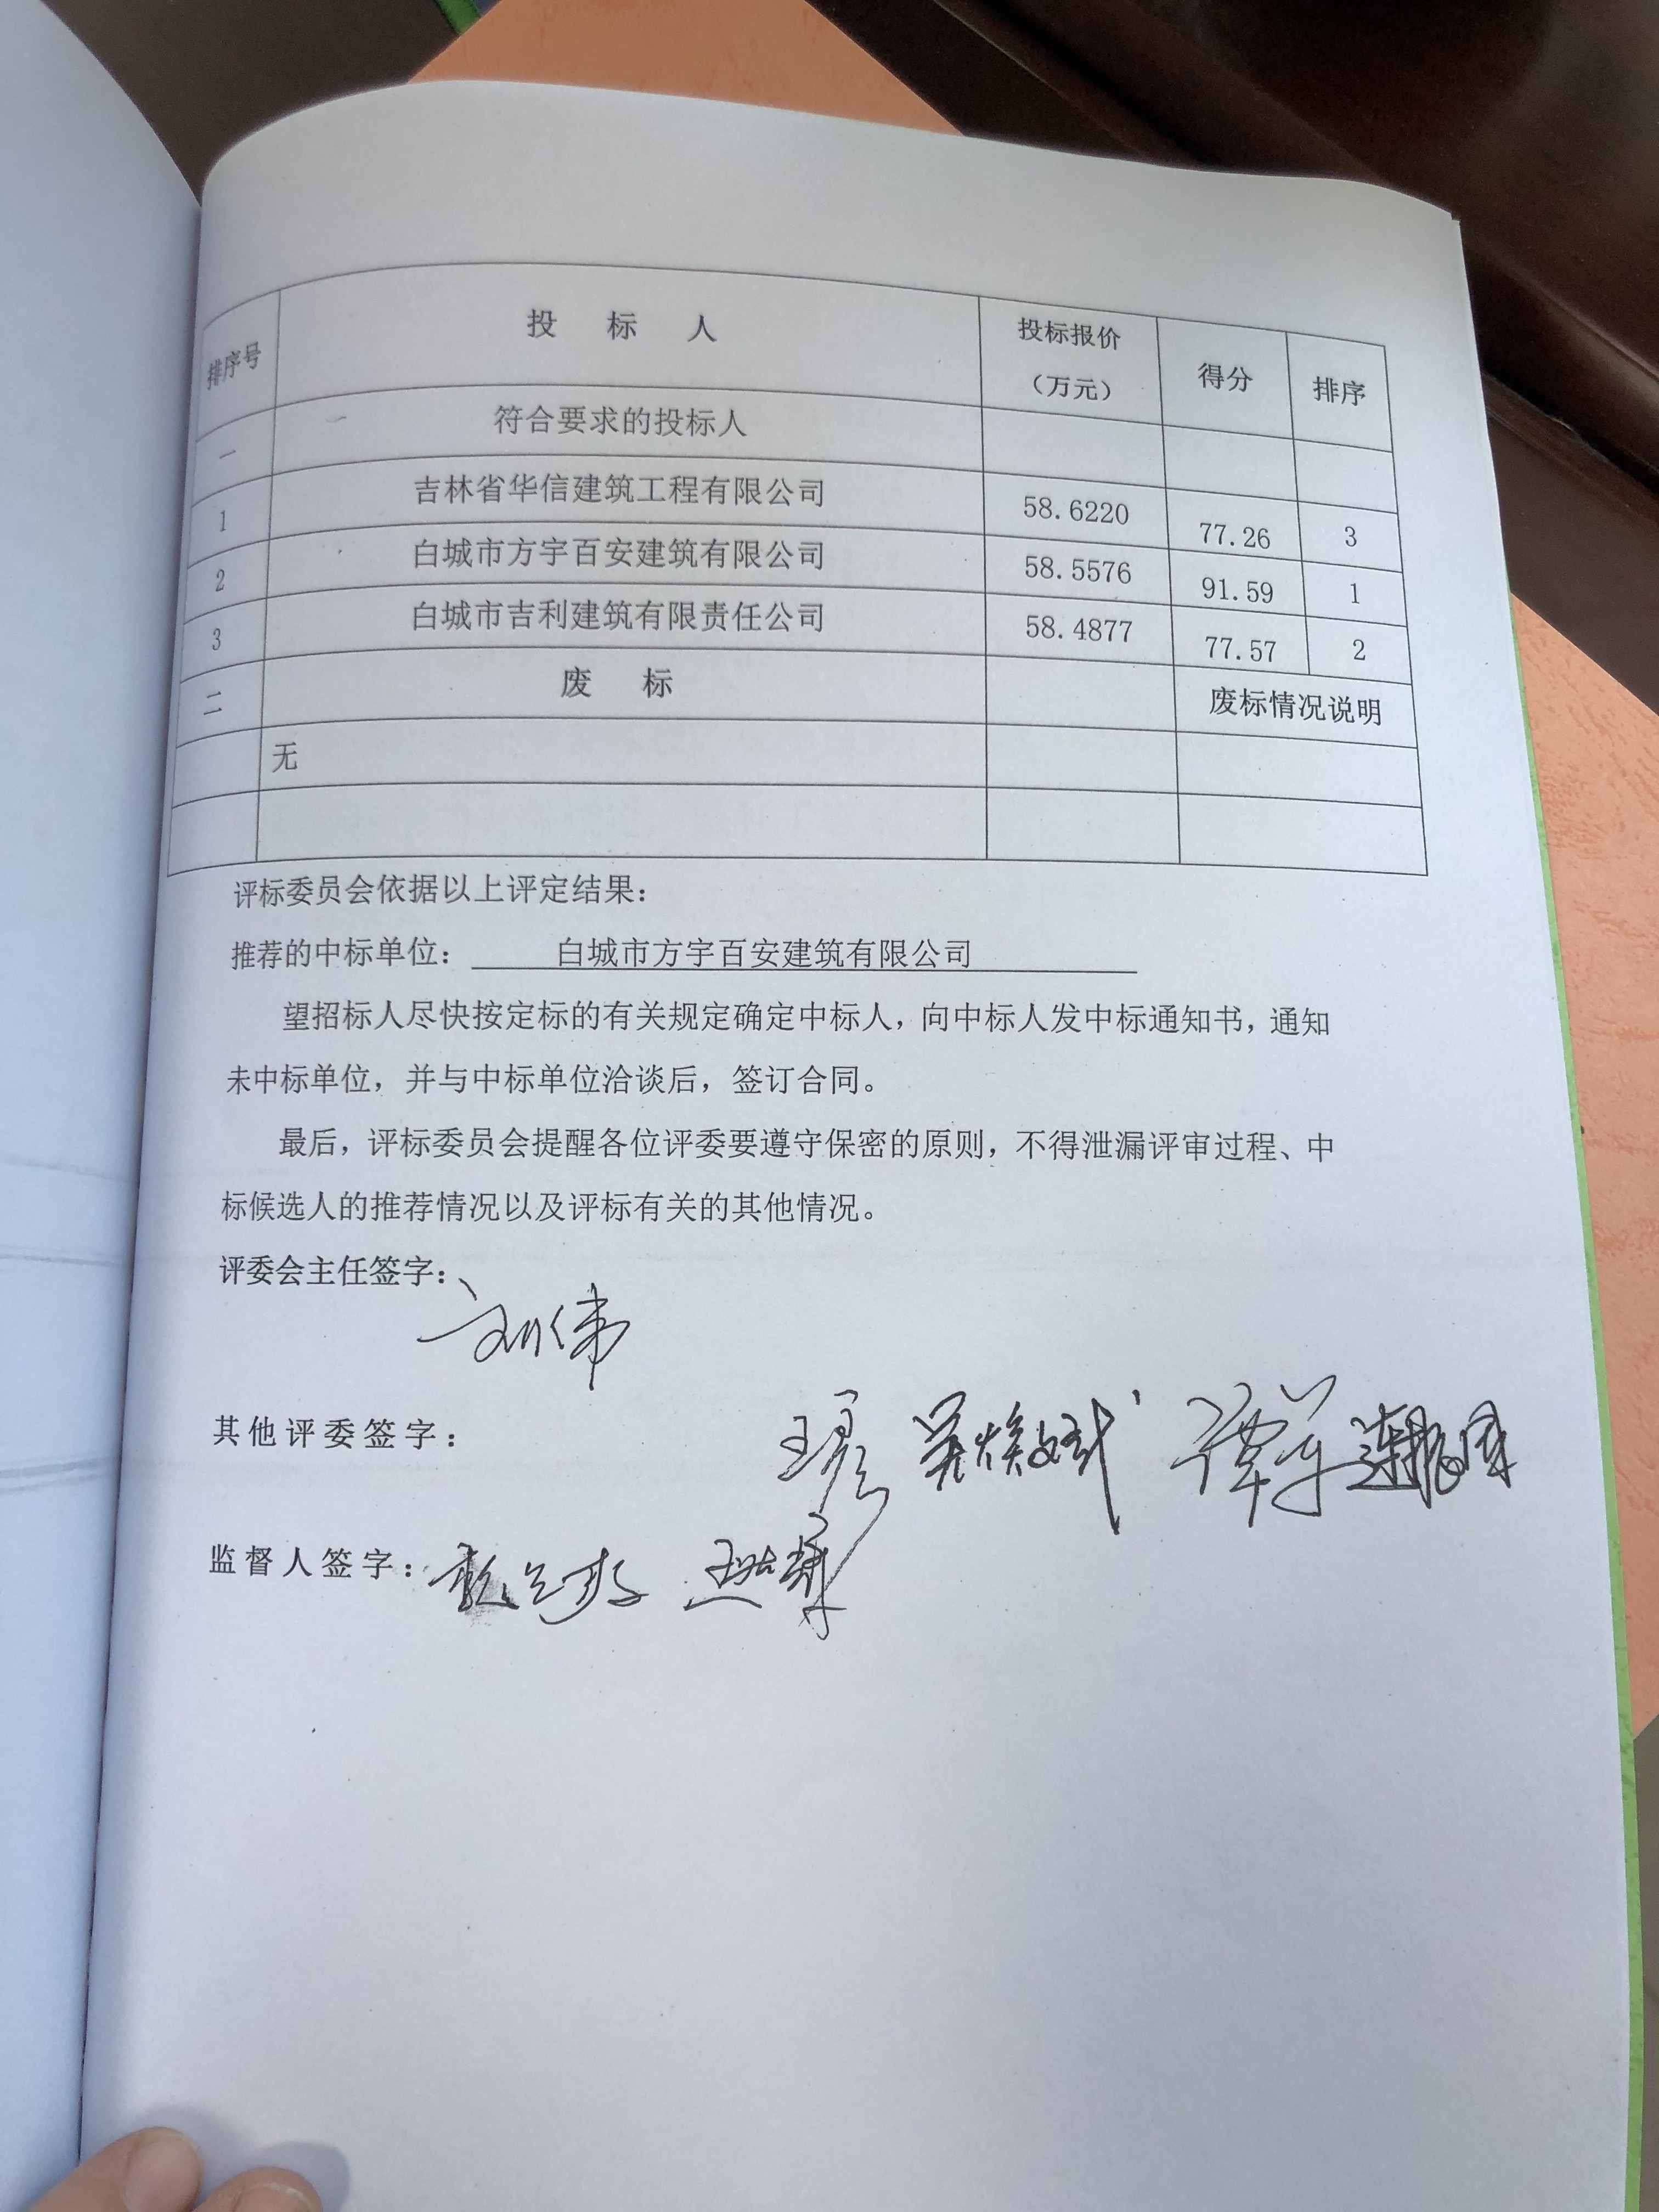 排序号 投 标 人 投标报价（万元） 得分 排序
一 符合要求的投标人
1 吉林省华信建筑工程有限公司 58.6220 77.26 3
2 白城市方宇百安建筑有限公司 58.5576 91.59 1
3 白城市吉利建筑有限责任公司 58.4877 77.57 2
二 废 标 废标情况说明
无
评标委员会依据以上评定结果：
推荐的中标单位： 白城市方宇百安建筑有限公司
望招标人尽快按定标的有关规定确定中标人，向中标人发中标通知书，通知
未中标单位，并与中标单位洽谈后，签订合同。
最后，评标委员会提醒各位评委要遵守保密的原则，不得泄漏评审过程、中
标候选人的推荐情况以及评标有关的其他情况。
评委会主任签字：
刘伟
其他评委签字：
监督人签字：